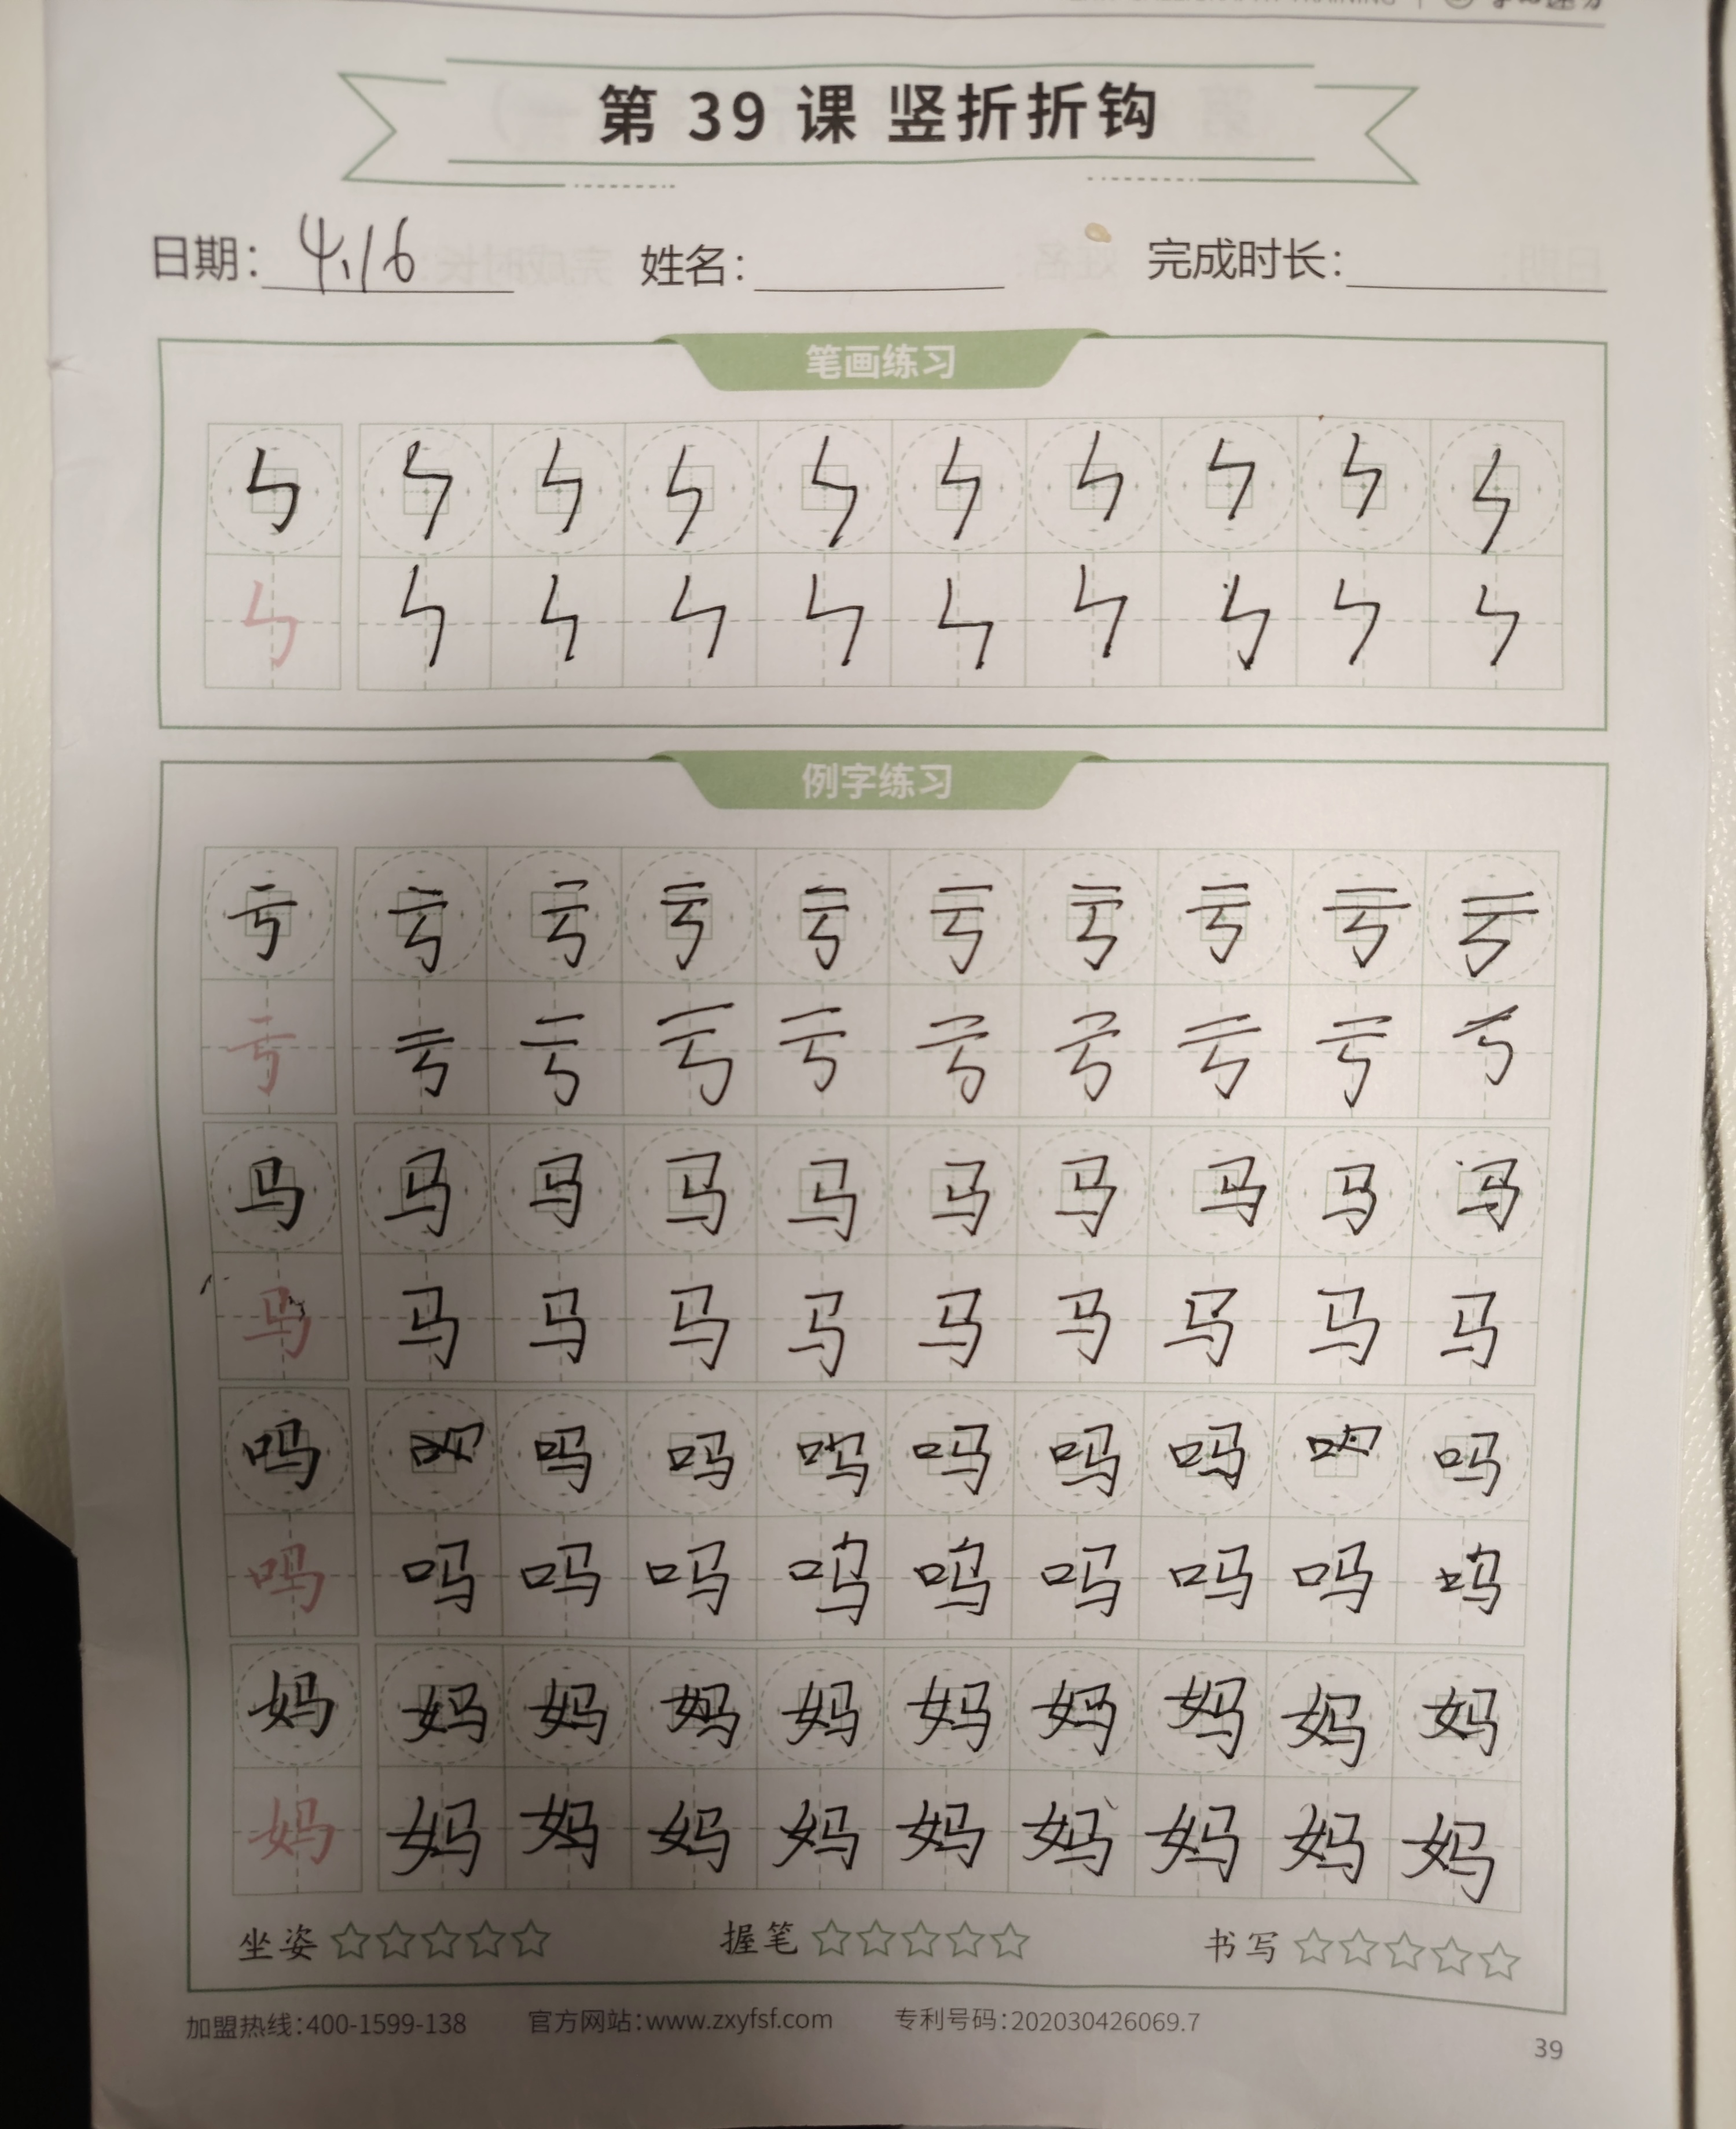 第 39 课 竖折折钩
日期：4.16 姓名： 完成时长：
笔画练习
㇉ ㇉ ㇉ ㇉ ㇉ ㇉ ㇉ ㇉ ㇉ ㇉
㇉ ㇉ ㇉ ㇉ ㇉ ㇉ ㇉ ㇉ ㇉ ㇉
例字练习
亏 亏 亏 亏 亏 亏 亏 亏 亏 亏
亏 亏 亏 亏 亏 亏 亏 亏 亏 亏
马 马 马 马 马 马 马 马 马 马
马 马 马 马 马 马 马 马 马 马
吗 吗 吗 吗 吗 吗 吗 吗
吗 吗 吗 吗 呜 呜 吗 吗 吗 呜
妈 妈 妈 妈 妈 妈 妈 妈 妈 妈
妈 妈 妈 妈 妈 妈 妈 妈 妈 妈
坐姿 ☆☆☆☆☆ 握笔 ☆☆☆☆☆ 书写 ☆☆☆☆☆
加盟热线：400-1599-138 官方网站：www.zxyfsf.com 专利号码：202030426069.7
39